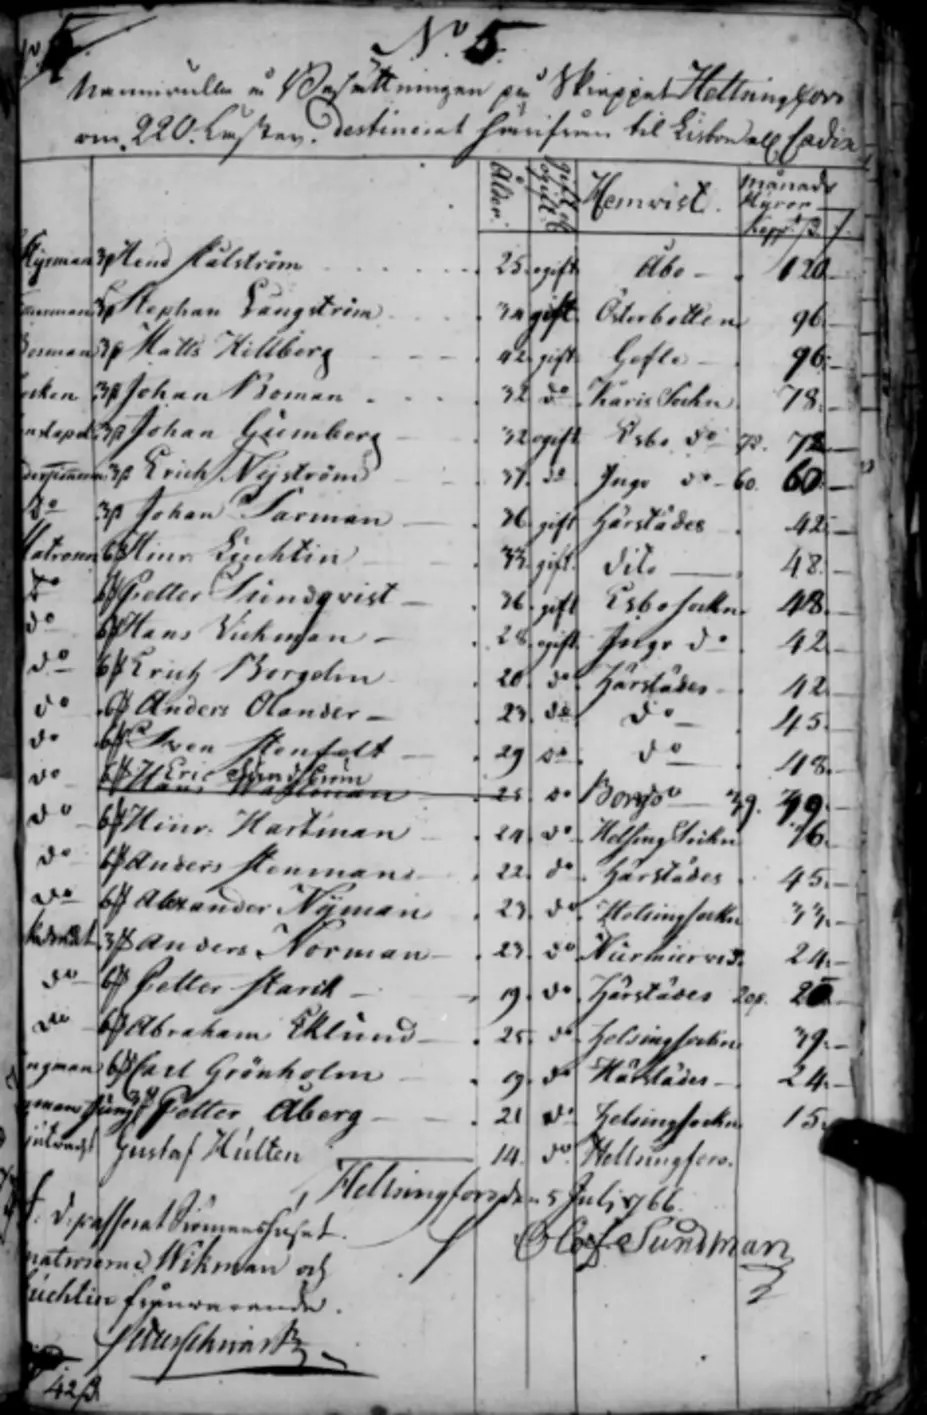 No 5.
Namnrulla å Besättningen på Skeppet Helsingfors
om 220. Läster. Destinerat härifrån til Lisbon el Cadix
Ålder. gift el ogift Hemvist. månads Hyror
Kopp. /3.
Styrman 3p Hend Kålström 25. ogift Åbo 120
3p Stephan Långström gift. Österbotten 96.
3p Matts Hillberg 42. gift Gefle 96.
3p Johan Boman 32 do Karis Sockn 78.
3p Johan Grömberg 32 ogift Esbo do 72. 72
3p Erich Nyström 37. do Ingo do 60. 60.
do 3p Johan Sarman 36 gift Härstädes 42.
Matroser 6p Hinr. Lüchtin 33. gift. dito 48.
do 6p Petter Sundqvist 36. gift Esbo sockn. 48.
do 6p Hans Vickman 28. ogift Ingo do 42
do 6p Erich Borgelin 20 do Härstädes 42
do 6p Anders Olander 23. do do 45.
do 6p Sven Stenfelt 29 do do 48.
do 6p Eric Sundström 25 do Borgo 39. 39.
do 6p Hinr. Hartman 24. do Helsing Sockn 36.
do 6p Anders Stenman 22. do Härstädes 45.
do 6p Alexander Nyman 23. do Helsing sockn 33.
3p Anders Norman 23. do Nurmiervi. 24.
do 6p Petter Starck 19. do Härstädes 20. 20
do 6p Abraham Eklund 25. do Helsing sockn 39.
6p Carl Grönholm 19. do Härstädes 24.
Petter Åberg 21 do Helsing sockn 15.
Gustaf Hulten 14. do Hellsingfors.
Hellsingfors den 5 Julj 1766.
Olof Sundman
Matroserne Wikman och
Lüchtin frånvarande.
42/3